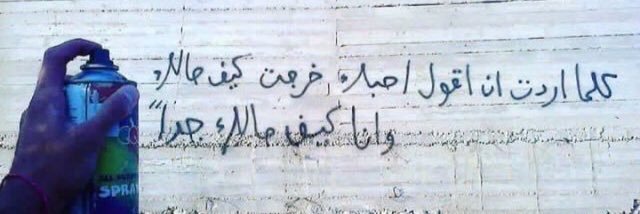 كلما اردت ان اقول احبك, خرجت كيف حالك
وانا كيف حالك جداً
ALL PURPOSE
SPRAY